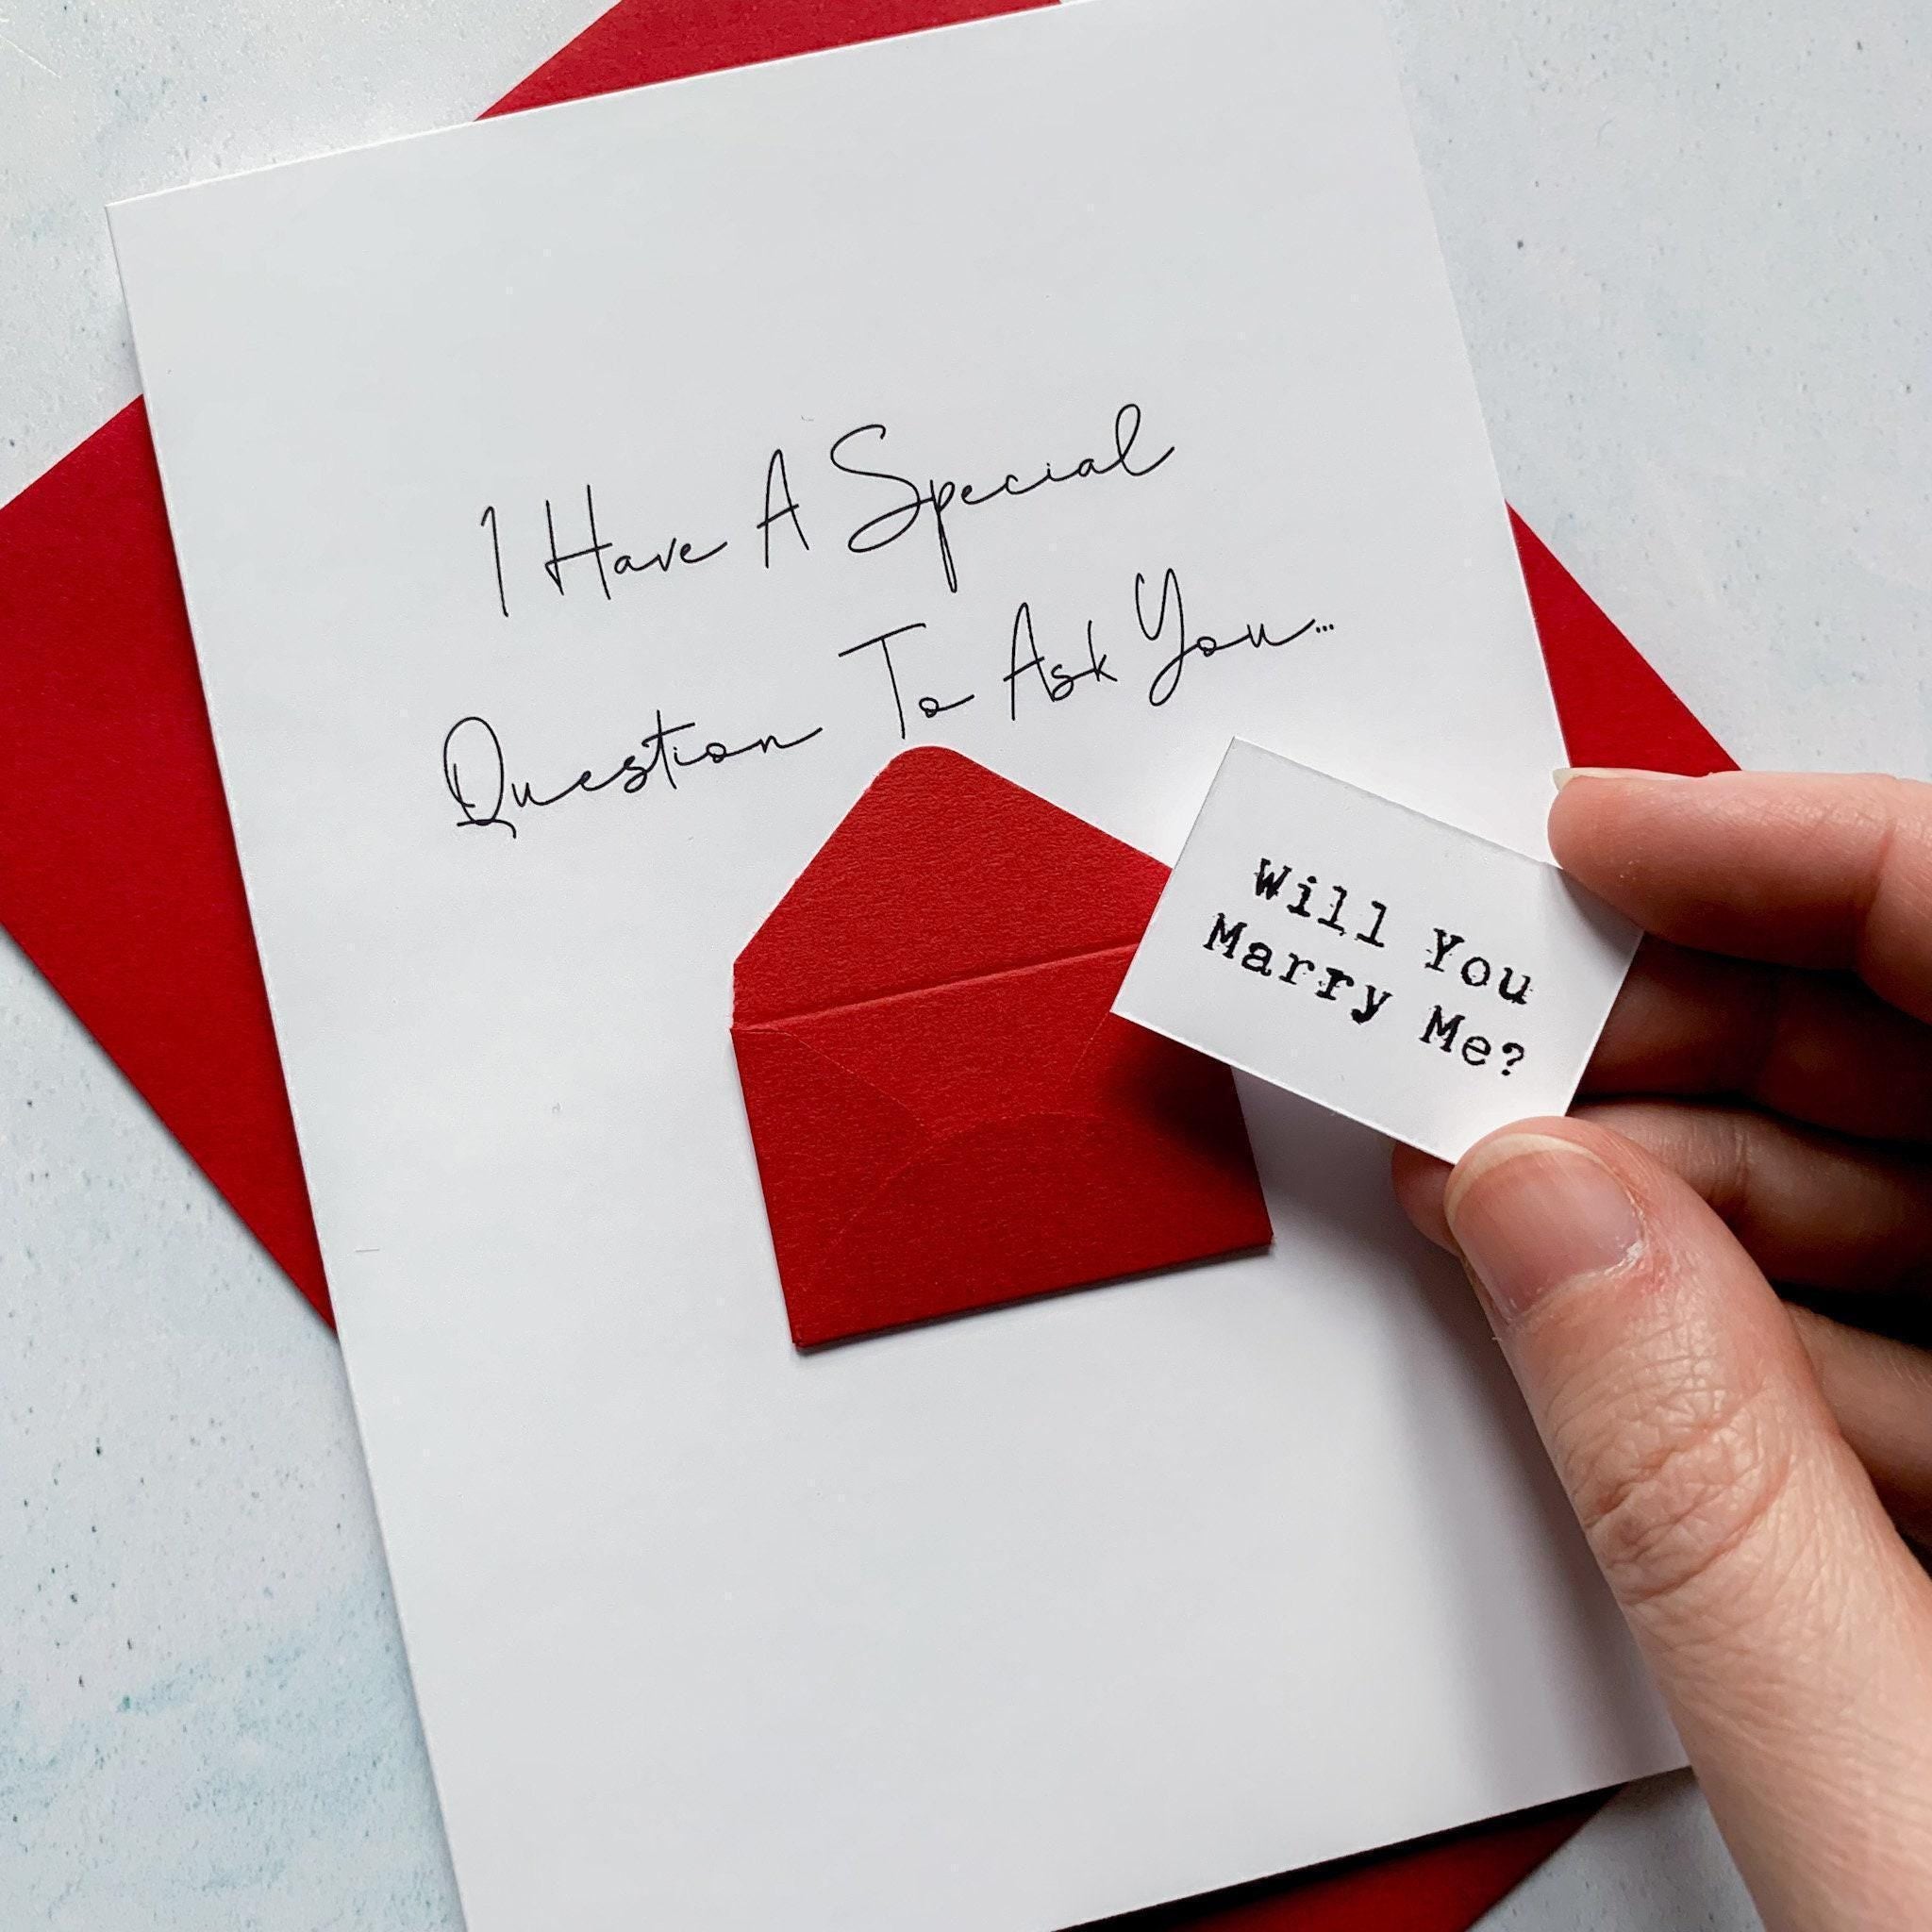 I Have A Special
Question To Ask You...
Will You
Marry Me?